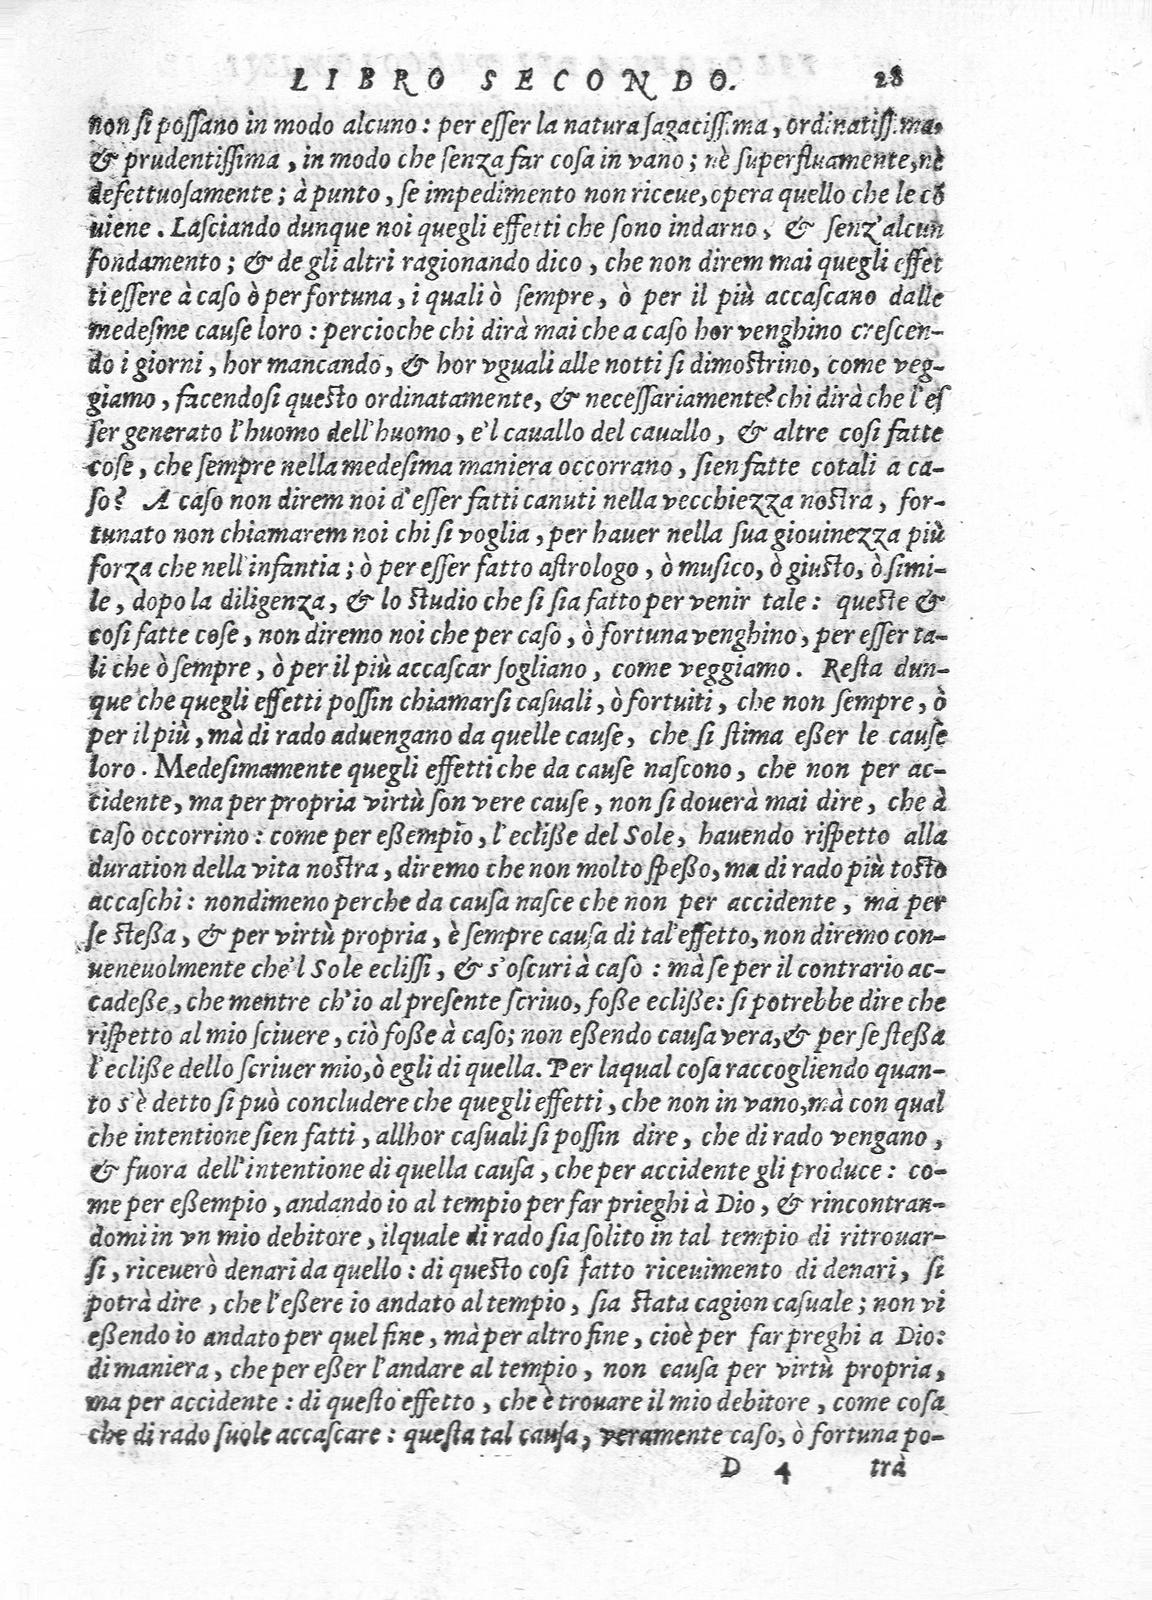 LIBRO SECONDO. 28
non ſi poſſano in modo alcuno : per eſſer la natura ſagaciſſima, ordinatiſſima,
& prudentiſſima, in modo che ſenza far coſa in vano ; nè ſuperfluamente, nè
defettuoſamente ; à punto, ſe impedimento non riceue, opera quello che le cō
uiene. Laſciando dunque noi quegli effetti che ſono indarno, & ſenz'alcun
fondamento ; & de gli altri ragionando dico, che non direm mai quegli effet
ti eſſere à caſo ò per fortuna, i quali ò ſempre, ò per il più accaſcano dalle
medeſme cauſe loro : percioche chi dirà mai che a caſo hor venghino creſcen-
do i giorni, hor mancando, & hor vguali alle notti ſi dimoſtrino, come veg-
giamo, facendoſi queſto ordinatamente, & neceſſariamente? chi dirà che l'eſ
ſer generato l'huomo dell'huomo, e'l cauallo del cauallo, & altre coſi fatte
coſe, che ſempre nella medeſima maniera occorrano, ſien fatte cotali a ca-
ſo? A caſo non direm noi d'eſſer fatti canuti nella vecchiezza noſtra, for-
tunato non chiamarem noi chi ſi voglia, per hauer nella ſua giouinezza più
forza che nell'infantia ; ò per eſſer fatto aſtrologo, ò muſico, ò giuſto, ò ſimi-
le, dopo la diligenza, & lo ſtudio che ſi ſia fatto per venir tale : queſte &
coſi fatte coſe, non diremo noi che per caſo, ò fortuna venghino, per eſſer ta-
li che ò ſempre, ò per il più accaſcar ſogliano, come veggiamo. Reſta dun-
que che quegli effetti poſſin chiamarſi caſuali, ò fortuiti, che non ſempre, ò
per il più, mà di rado aduengano da quelle cauſe, che ſi ſtima eßer le cauſe
loro. Medeſimamente quegli effetti che da cauſe naſcono, che non per ac-
cidente, ma per propria virtù ſon vere cauſe, non ſi douerà mai dire, che à
caſo occorrino : come per eßempio, l'ecliße del Sole, hauendo riſpetto alla
duration della vita noſtra, diremo che non molto ſpeßo, ma di rado più toſto
accaſchi : nondimeno perche da cauſa naſce che non per accidente, ma per
ſe ſteßa, & per virtù propria, è ſempre cauſa di tal'effetto, non diremo con-
ueneuolmente che'l Sole ecliſſi, & s'oſcuri à caſo : mà ſe per il contrario ac-
cadeße, che mentre ch'io al preſente ſcriuo, foße ecliße : ſi potrebbe dire che
riſpetto al mio ſciuere, ciò foße à caſo ; non eßendo cauſa vera, & per ſe ſteßa
l'ecliße dello ſcriuer mio, ò egli di quella. Per laqual coſa raccogliendo quan-
to s'è detto ſi può concludere che quegli effetti, che non in vano, mà con qual
che intentione ſien fatti, allhor caſuali ſi poſſin dire, che di rado vengano,
& fuora dell'intentione di quella cauſa, che per accidente gli produce : co-
me per eßempio, andando io al tempio per far prieghi à Dio, & rincontran-
domi in vn mio debitore, ilquale di rado ſia ſolito in tal tempio di ritrouar-
ſi, riceuerò denari da quello : di queſto coſi fatto riceuimento di denari, ſi
potrà dire, che l'eßere io andato al tempio, ſia ſtata cagion caſuale ; non vi
eßendo io andato per quel fine, mà per altro fine, cioè per far preghi a Dio:
di maniera, che per eßer l'andare al tempio, non cauſa per virtù propria,
ma per accidente : di queſto effetto, che è trouare il mio debitore, come coſa
che di rado ſuole accaſcare : queſta tal cauſa, veramente caſo, ò fortuna po-
D 4 trà